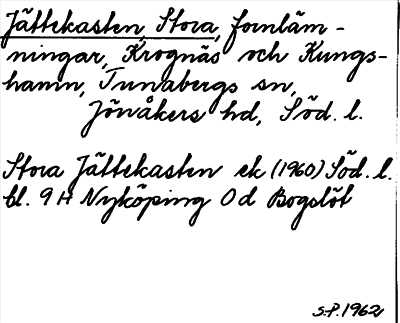 Jättekasten, Stora, fornläm-
ningar, Krognäs och Kungs-
hamn, Tunabergs sn,
Jönåkers hd, Söd. l.
Stora Jättekasten ek (1960) Söd. l.
bl. 9 H Nyköping 0 d Bogslöt
S.P. 1962